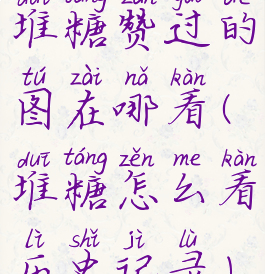 堆糖赞过的
tú zài nǎ kàn
图在哪看(
duī táng zěn me kàn
堆糖怎么看
lì shǐ jì lù
历史记录)